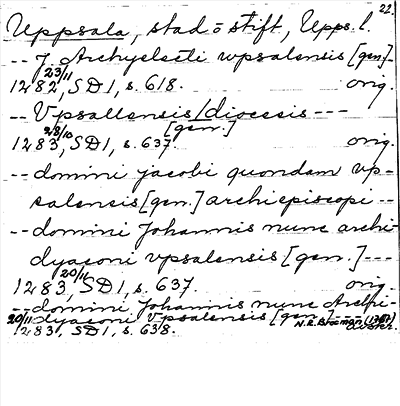 22.
Uppsala, stad o stift, Upps. l.
-- J. Archyelecti upsalensis [gen]-
23/11
1282, SD 1, s. 618. orig.
-- Vpsallensis diocesis ---
[gen.]
28/10
1283, SD 1, s. 637. orig.
-- domini jacobi quondam vp-
salensis [gen.] archiepiscopi --
-- domini Johannis nunc archi-
dyaconi vpsalensis [gen.] ---
20/11
1283, SD 1, s. 637. orig.
-- domini Johannis nunc Archi-
dyaconi Vpsalensis [gen.] ---
20/11 1283, SD 1, s. 638. N.R. Brocman